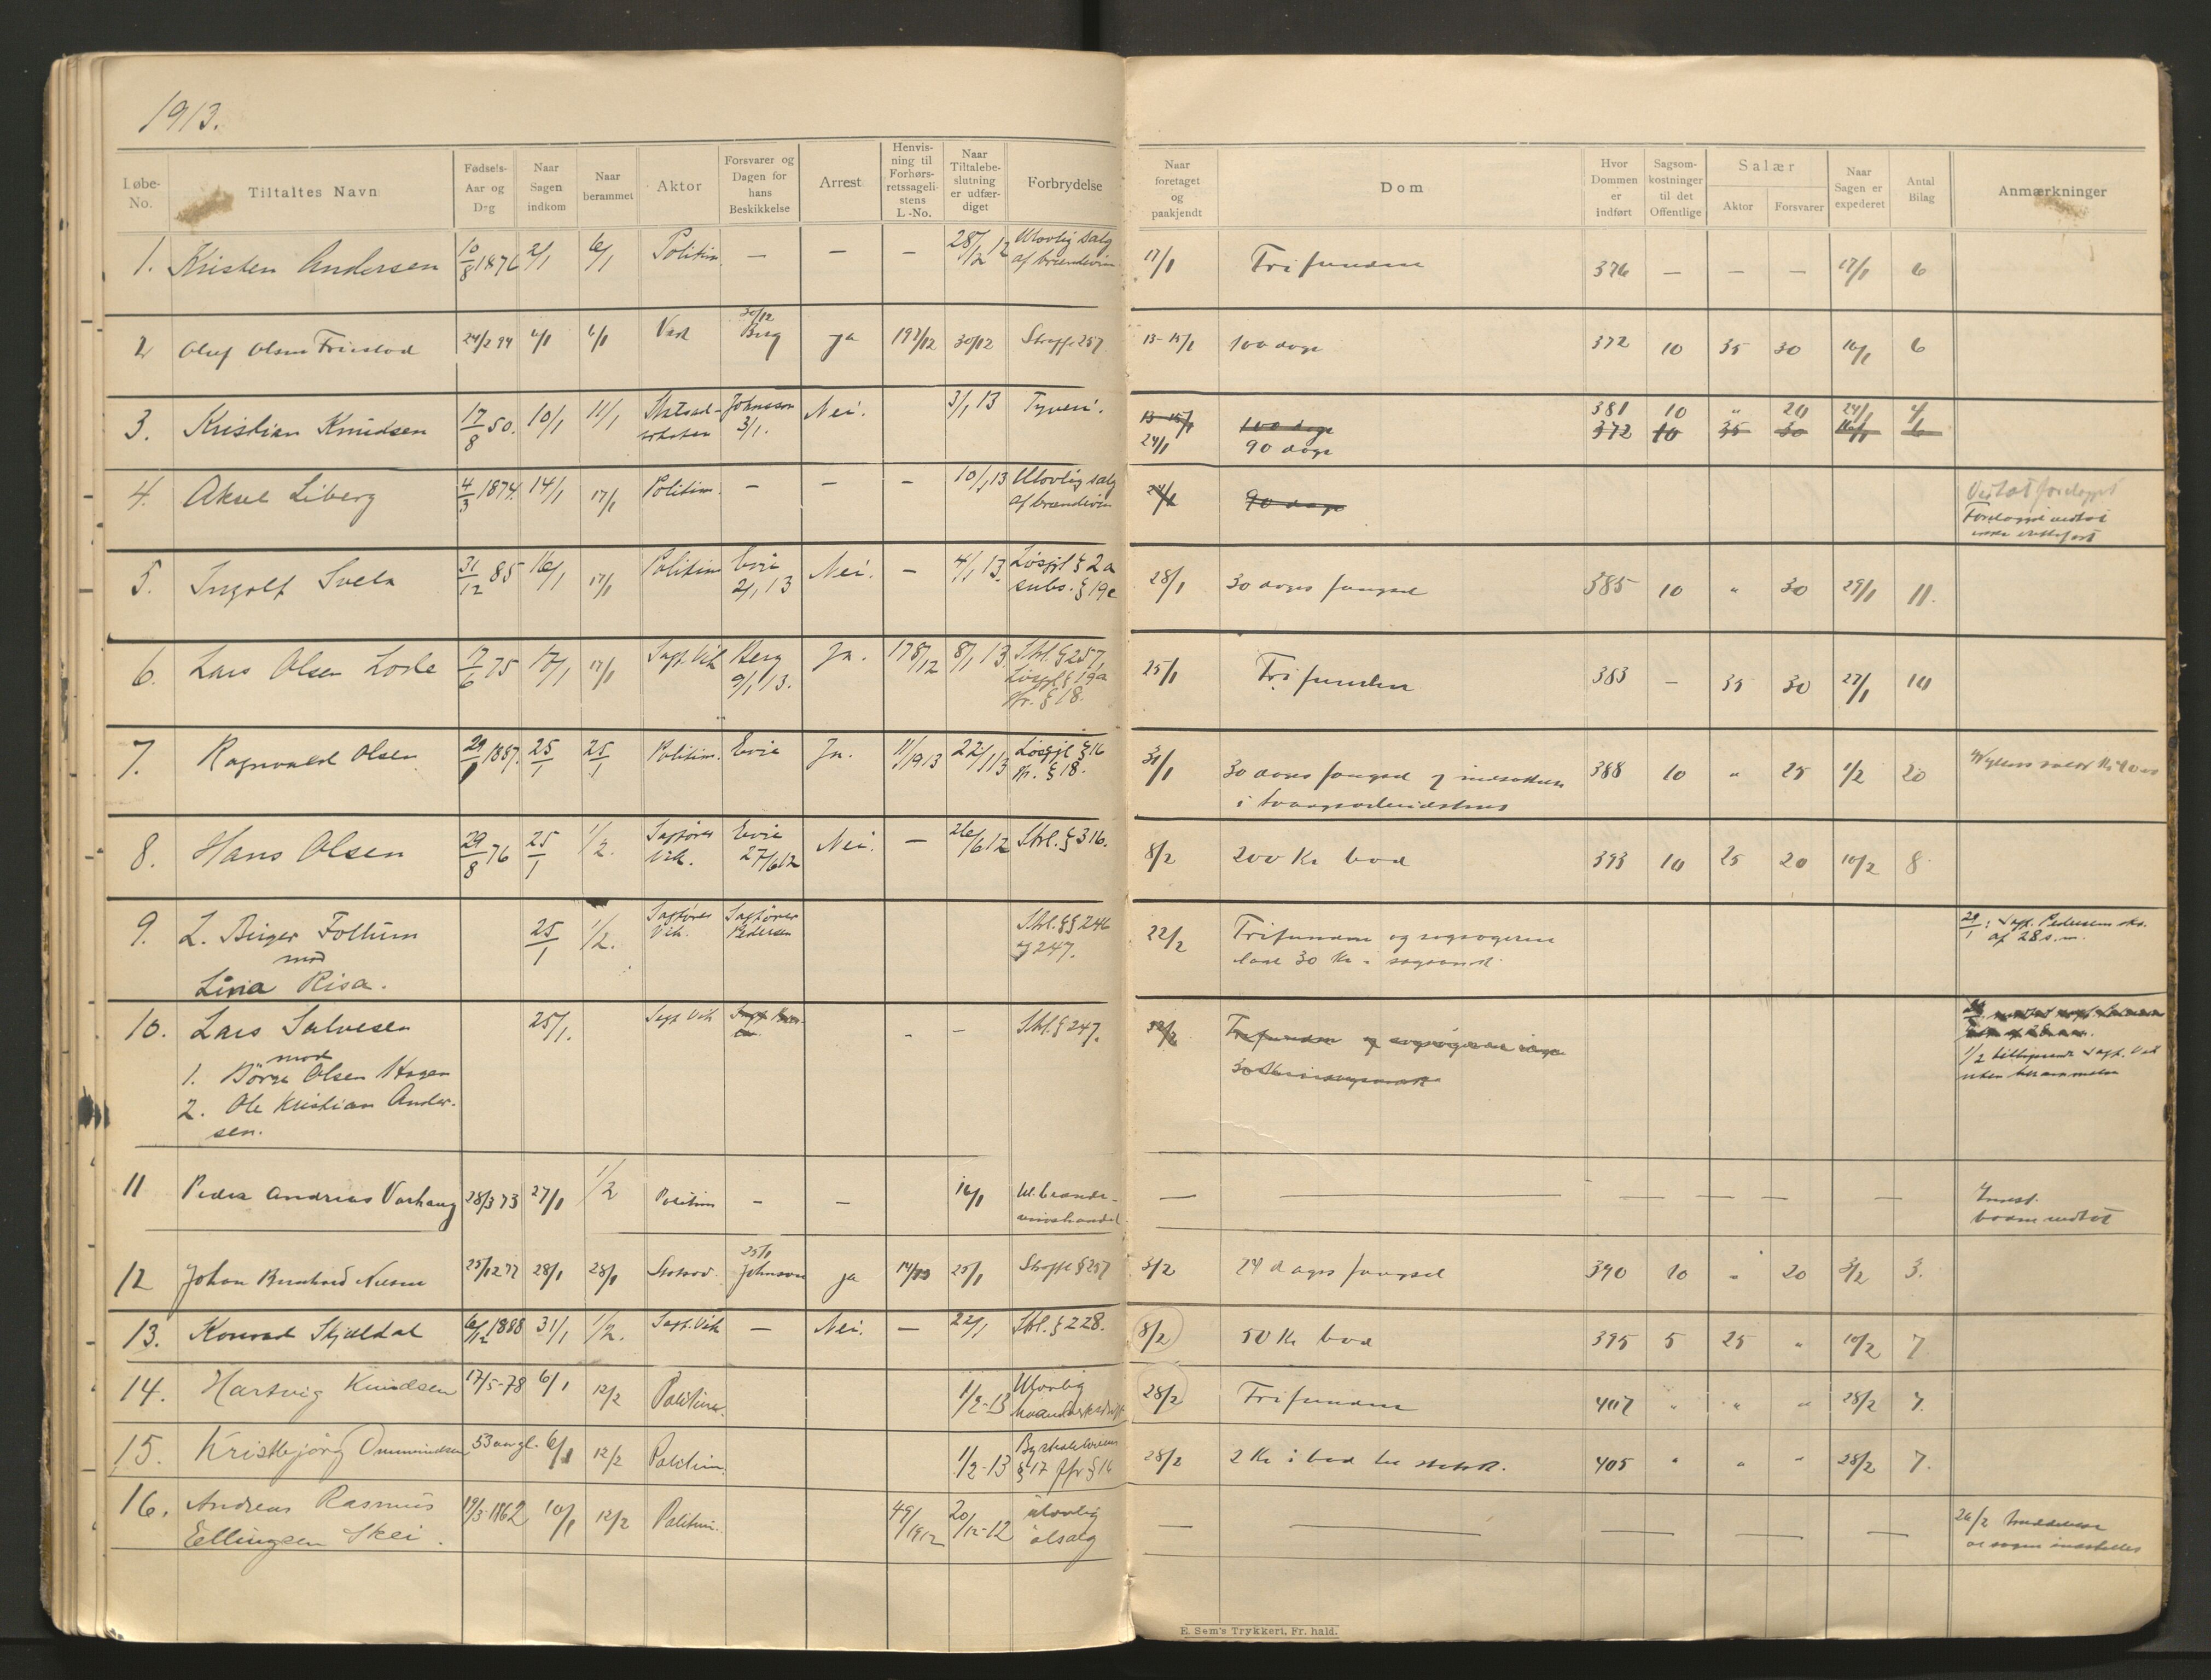 1913.
Løbe-No. Tiltaltes Navn Fødsels-Aar og Dag Naar Sagen indkom Naar berammet Aktor Forsvarer og Dagen for hans Beskikkelse Arrest Henvisning til Forhørsretssagelistens L.-No. Naar Tiltalebeslutning er udfærdiget Forbrydelse Naar foretaget og paakjendt Dom Hvor Dommen er indført Sagsomkostninger til det Offentlige Salær Aktor Forsvarer Naar Sagen er expederet Antal Bilag Anmærkninger
1. Kristen Andersen 10/8 1876 2/1 6/1 Politim. — — — 28/12 12 Ulovlig salg af brændevin 17/1 Frifunden 376 — — — 17/1 6
2 Oluf Olsen 24/2 94 6/1 6/1 30/12 Berg ja 197/12 30/12 Straffe 257 13-15/1 100 dage 372 10 35 30 16/1 6
3. Kristian Knudsen 17/8 50. 10/1 11/1 Johnsson 3/1. Nei. 3/1 13 Tyveri. 13-15/1 24/1 100 dage 90 dage 381 10 " 20 24/1 4/1
372 10 35 30 16/1 6
4. Aksel Liberg 4/3 1874. 14/1 17/1 Politim. — — — 10/1 13 Ulovlig salg af brændevin 24/1 90 dage Vedtat forelægget
5. Ingolf Svela 31/12 85 16/1 17/1 Politim Evie 2/1 13 Nei. — 4/1 13. Løsgjl § 2a subs. § 19c 28/1 30 dages fængsel 385 10 " 30 29/1 11.
6. Lars Olsen 17/6 75 17/1 17/1 Sagf. Vik Berg 9/1 13. Ja. 178/12 8/1 13. Strl. § 257, Løsgjl. § 19a jfr. § 18. 25/1 Frifunden 383 — 35 30 27/1 14
7. Ragnvald Olsen 29/1 1887. 25/1 25/1 Politim. Evie Ja. 11/1913 22/1 13 Løsgjl § 16 jfr. § 18. 31/1 30 dages fængsel og indsættes i tvangsarbeidshus 388 10 " 25 1/2 20
8. Hans Olsen 29/8 76 25/1 1/2. Sagfører Vik. Evie 27/6 12 Nei. — 26/6 12 Strl. § 316. 8/2 200 Kr bod 393 10 25 20 10/2 8
9. L. Birger Foltum mod Lina Risa. 25/1 1/2. Sagfører Vik. Sagfører Pedersen Strl. §§ 246 og 247. 22/2 Frifunden og sagsøgeren 30 Kr i 29/1: Sagf. Pedersen af 28 s.m.
10. Lars Salvesen mod 25/1. Sagf Vik - — Strl. § 247. 22/2 Frifunden og sagsøgeren
1. Börge Olsen Hagen
2. Ole Kristian Andersen. 1/2 Sagf. Vik uden berammelse
11 Peder Andreas Varhaug 28/3 73 27/1 1/2 Politim — — 16/1 Ul. brændevinshandel — — — — — — — boden vedtat
12 Johan Bernhard Nilsen 25/12 77 28/1 28/1 Statsad. 25/1 Johnsson ja 14/13 25/1 Straffe § 257 3/2 24 dages fængsel 390 10 " 20 3/2 3.
13. Konrad Skjældal 6/12 1888 31/1 1/2. Sagf. Vik — Nei. — 22/1 Strl. § 228. 8/2 50 Kr bod 395 5 25 " 10/2 7
14. Hartvig Knudsen 17/5-78 6/1 12/2 Politim. 1/2-13 Ulovlig 28/2 Frifunden 407 " " " 28/2 7.
15. Kristbjörg Ommundsen 53 aar gl. 6/1 12/2 Politim. 1/2-13 § 17 jfr § 16 28/2 2 Kr i bod til statsk. 405 " " " 28/2 7.
16. Andreas Rasmus Ellingsen Skei. 19/3-1862 10/1 12/2 Politim. 49/1912 20/12-12 ulovlig ölsalg — — — — — 26/2 at sagen indstilles
E. Sem's Trykkeri, Fr. hald.